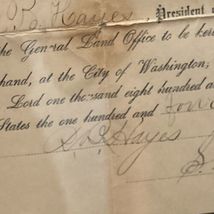 Hayes, President of
the General Land Office to be here
hand, at the City of Washington,
Lord one thousand eight hundred a
States the one hundred and
Hayes